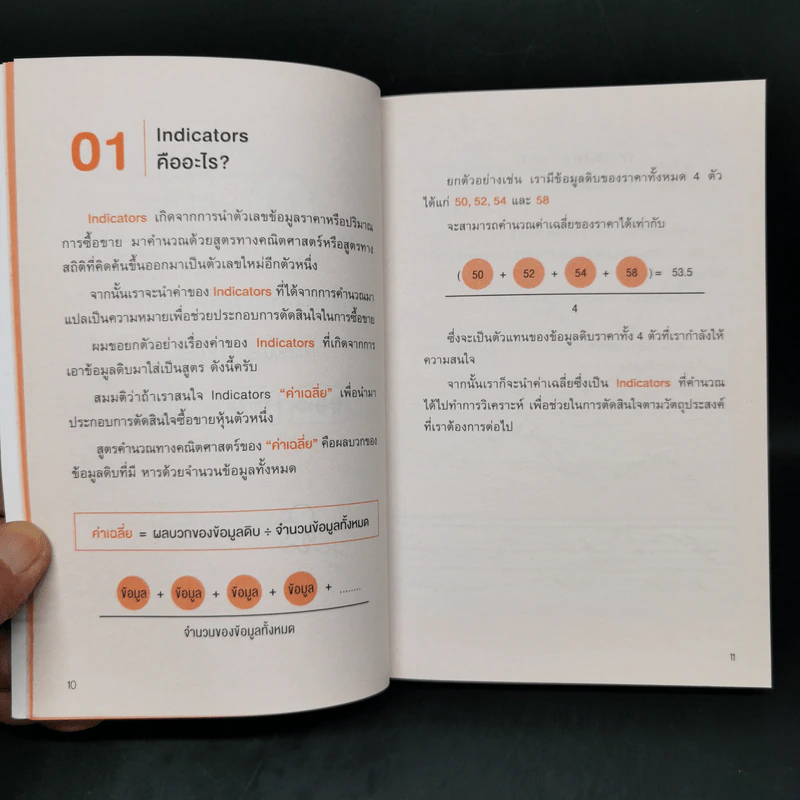 01
Indicators
คืออะไร?
Indicators เกิดจากการนำตัวเลขข้อมูลราคาหรือปริมาณ
การซื้อขาย มาคำนวณด้วยสูตรทางคณิตศาสตร์หรือสูตรทาง
สถิติที่คิดค้นขึ้นออกมาเป็นตัวเลขใหม่อีกตัวหนึ่ง
จากนั้นเราจะนำค่าของ Indicators ที่ได้จากการคำนวณมา
แปลเป็นความหมายเพื่อช่วยประกอบการตัดสินใจในการซื้อขาย
ผมขอยกตัวอย่างเรื่องค่าของ Indicators ที่เกิดจากการ
เอาข้อมูลดิบมาใส่เป็นสูตร ดังนี้ครับ
สมมติว่าถ้าเราสนใจ Indicators “ค่าเฉลี่ย” เพื่อนำมา
ประกอบการตัดสินใจซื้อขายหุ้นตัวหนึ่ง
สูตรคำนวณทางคณิตศาสตร์ของ “ค่าเฉลี่ย” คือผลบวกของ
ข้อมูลดิบที่มี หารด้วยจำนวนข้อมูลทั้งหมด
ค่าเฉลี่ย = ผลบวกของข้อมูลดิบ ÷ จำนวนข้อมูลทั้งหมด
ข้อมูล + ข้อมูล + ข้อมูล + ข้อมูล + ........
จำนวนของข้อมูลทั้งหมด
10
ยกตัวอย่างเช่น เรามีข้อมูลดิบของราคาทั้งหมด 4 ตัว
ได้แก่ 50, 52, 54 และ 58
จะสามารถคำนวณค่าเฉลี่ยของราคาได้เท่ากับ
( 50 + 52 + 54 + 58 ) = 53.5
4
ซึ่งจะเป็นตัวแทนของข้อมูลดิบราคาทั้ง 4 ตัวที่เรากำลังให้
ความสนใจ
จากนั้นเราก็จะนำค่าเฉลี่ยซึ่งเป็น Indicators ที่คำนวณ
ได้ไปทำการวิเคราะห์ เพื่อช่วยในการตัดสินใจตามวัตถุประสงค์
ที่เราต้องการต่อไป
11